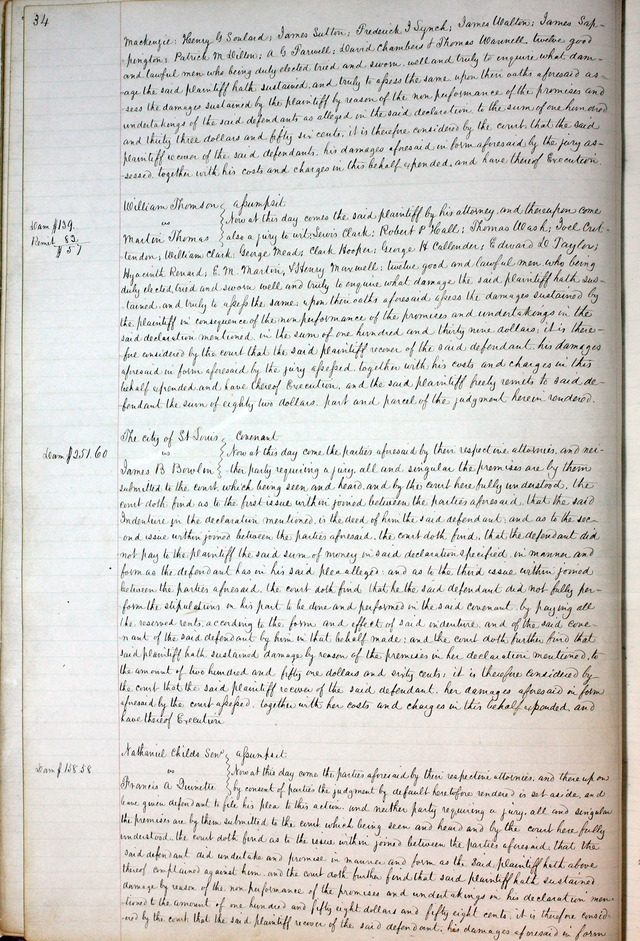 34
Mackenzie; Henry G Soulard; James Sutton; Frederick J Lynch; James Walton; James Sap-
pington; Patrick M Dillon; A G Farwell; David Chambers & Thomas Wannell. twelve good
and lawful men who being duly elected tried and sworn. well and truly to enquire what dam-
age the said plaintiff hath sustained, and truly to assess the same upon their oaths aforesaid as-
sess the damages sustained by the plaintiff by reason of the non performance of the promises and
undertakings of the said defendants as alleged in the said declaration to the sum of one hundred
and thirty three dollars and fifty six cents. it is therefore considered by the court, that the said
plaintiff recover of the said defendants, his damages aforesaid in form aforesaid by the jury as-
sessed together with his costs and charges in this behalf expended. and have thereof Execution.
William Thomson assumpsit
vs Now at this day comes the said plaintiff by his attorney, and thereupon come
Martin Thomas also a jury to wit; Lewis Clark; Robert P Hall; Thomas Wash; Joel Crit-
Dam $139.
Remit 82.
$57
tendon; William Clark; George Mead; Clark Hooper; George H Callender; Edward D Taylor;
Hyacinth Renard; E. M. Marton, & Henry Maxwell; twelve good and lawful men who being
duly elected, tried and sworn well and truly to enquire what damage the said plaintiff hath sus-
tained. and truly to assess the same, upon their oaths aforesaid assess the damages sustained by
the plaintiff in consequence of the non performance of the promises and undertakings in the
said declaration mentioned, in the sum of one hundred and thirty nine dollars; it is there-
fore considered by the court that the said plaintiff recover of the said defendant. his damages
aforesaid in form aforesaid by the jury assessed, together with his costs and charges in this
behalf expended and have thereof Execution, and the said plaintiff freely remits to said de-
fendant the sum of eighty two dollars. part and parcel of the judgment herein rendered.
The city of St Louis Covenant
vs Now at this day come the parties aforesaid by their respective attornies, and nei-
James B Bowlin ther party requiring a jury, all and singular the premises are by them
Dam $251.60
submitted to the court, which being seen and heard, and by the court here fully understood. the
court doth find as to the first issue within joined between the parties aforesaid, that the said
Indenture in the declaration mentioned, is the deed of him the said defendant; and as to the sec-
ond issue within joined between the parties aforesaid, the court doth find, that the defendant did
not pay to the plaintiff the said sum of money in said declaration specified, in manner and
form as the defendant has in his said plea alleged; and as to the third issue within joined
between the parties aforesaid, the court doth find that he the said defendant did not fully per-
form the stipulations on his part to be done and performed in the said covenant, by paying all
the reserved rents, according to the form and effect of said indenture, and of the said cove-
nant of the said defendant by him in that behalf made; and the court doth further find that
said plaintiff hath sustained damage by reason of the premises in her declaration mentioned, to
the amount of two hundred and fifty one dollars and sixty cents; it is therefore considered by
the court that the said plaintiff recover of the said defendant, her damages aforesaid in form
aforesaid by the court assessed, together with her costs and charges in this behalf expended. and
have thereof Execution
Nathaniel Childs Senr assumpsit
vs Now at this day come the parties aforesaid by their respective attornies. and thereupon
Dam $158.58
Francis A Quinette by consent of parties the judgment by default heretofore rendered is set aside, and
leave given defendant to file his plea to this action. and neither party requiring a jury, all and singular
the premises are by them submitted to the court which being seen and heard and by the court here fully
understood. the court doth find as to the issue within joined between the parties aforesaid, that the
said defendant did undertake and promise in manner and form as the said plaintiff hath above
thereof complained against him. and the court doth further find that said plaintiff hath sustained
damage by reason of the non performance of the promises and undertakings in his declaration men-
tioned to the amount of one hundred and fifty eight dollars and fifty eight cents. it is therefore consid-
ered by the court, that the said plaintiff recover of the said defendant, his damages aforesaid in form